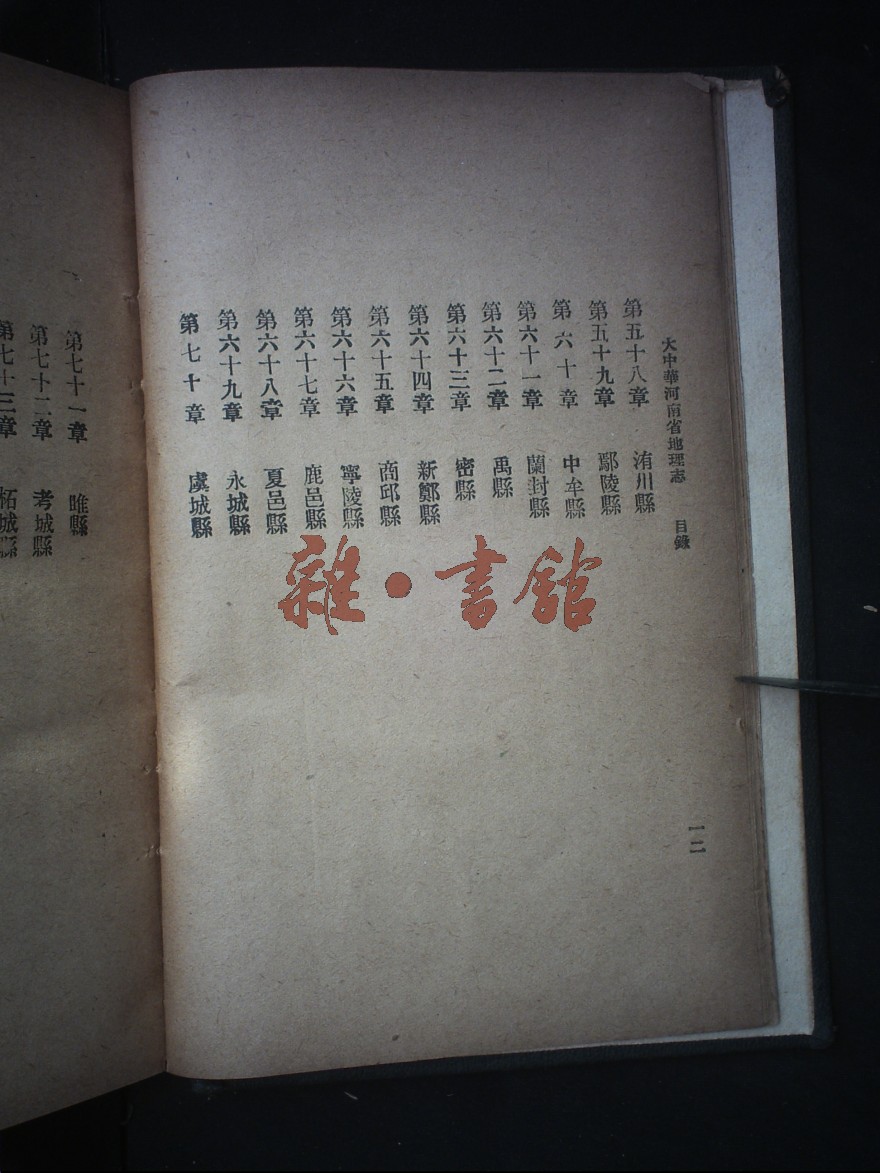 大中華河南省地理志 目錄
第五十八章 洧川縣
第五十九章 鄢陵縣
第六十章 中牟縣
第六十一章 蘭封縣
第六十二章 禹縣
第六十三章 密縣
第六十四章 新鄭縣
第六十五章 商邱縣
第六十六章 寧陵縣
第六十七章 鹿邑縣
第六十八章 夏邑縣
第六十九章 永城縣
第七十章 虞城縣
一二
第七十一章 睢縣
第七十二章 考城縣
第七十三章 柘城縣
雜·書館